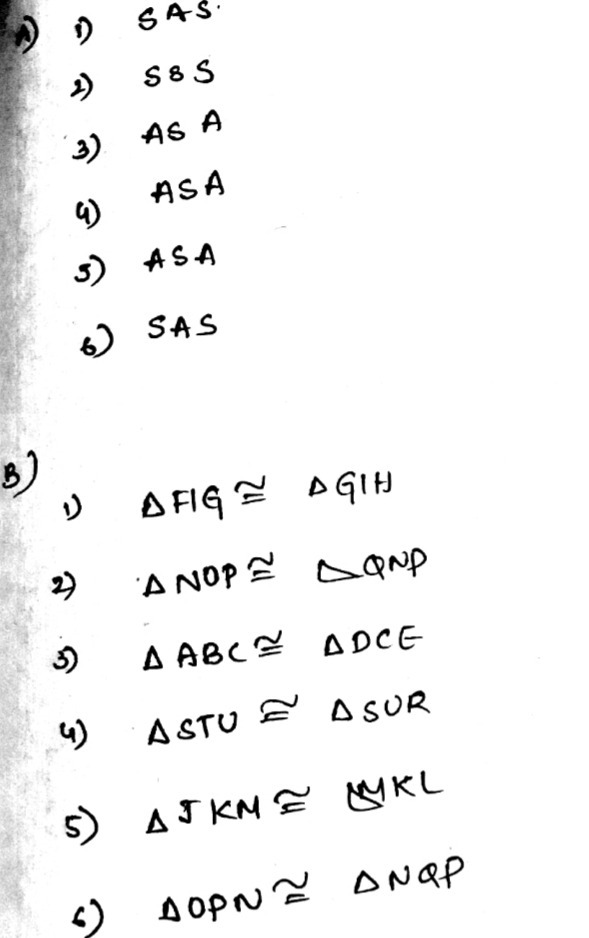 A) 1) SAS.
2) S8S
3) ASA
4) ASA
5) ASA
6) SAS
B)
1) Δ FIG ≅ Δ GIH
2) Δ NOP ≅ Δ QNP
3) Δ ABC ≅ Δ DCE
4) Δ STU ≅ Δ SUR
5) Δ JKM ≅ KL
6) Δ OPN ≅ Δ NQP